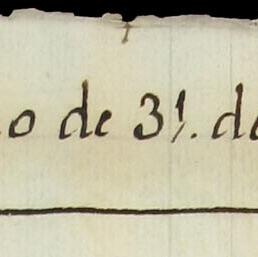 o de 31. de